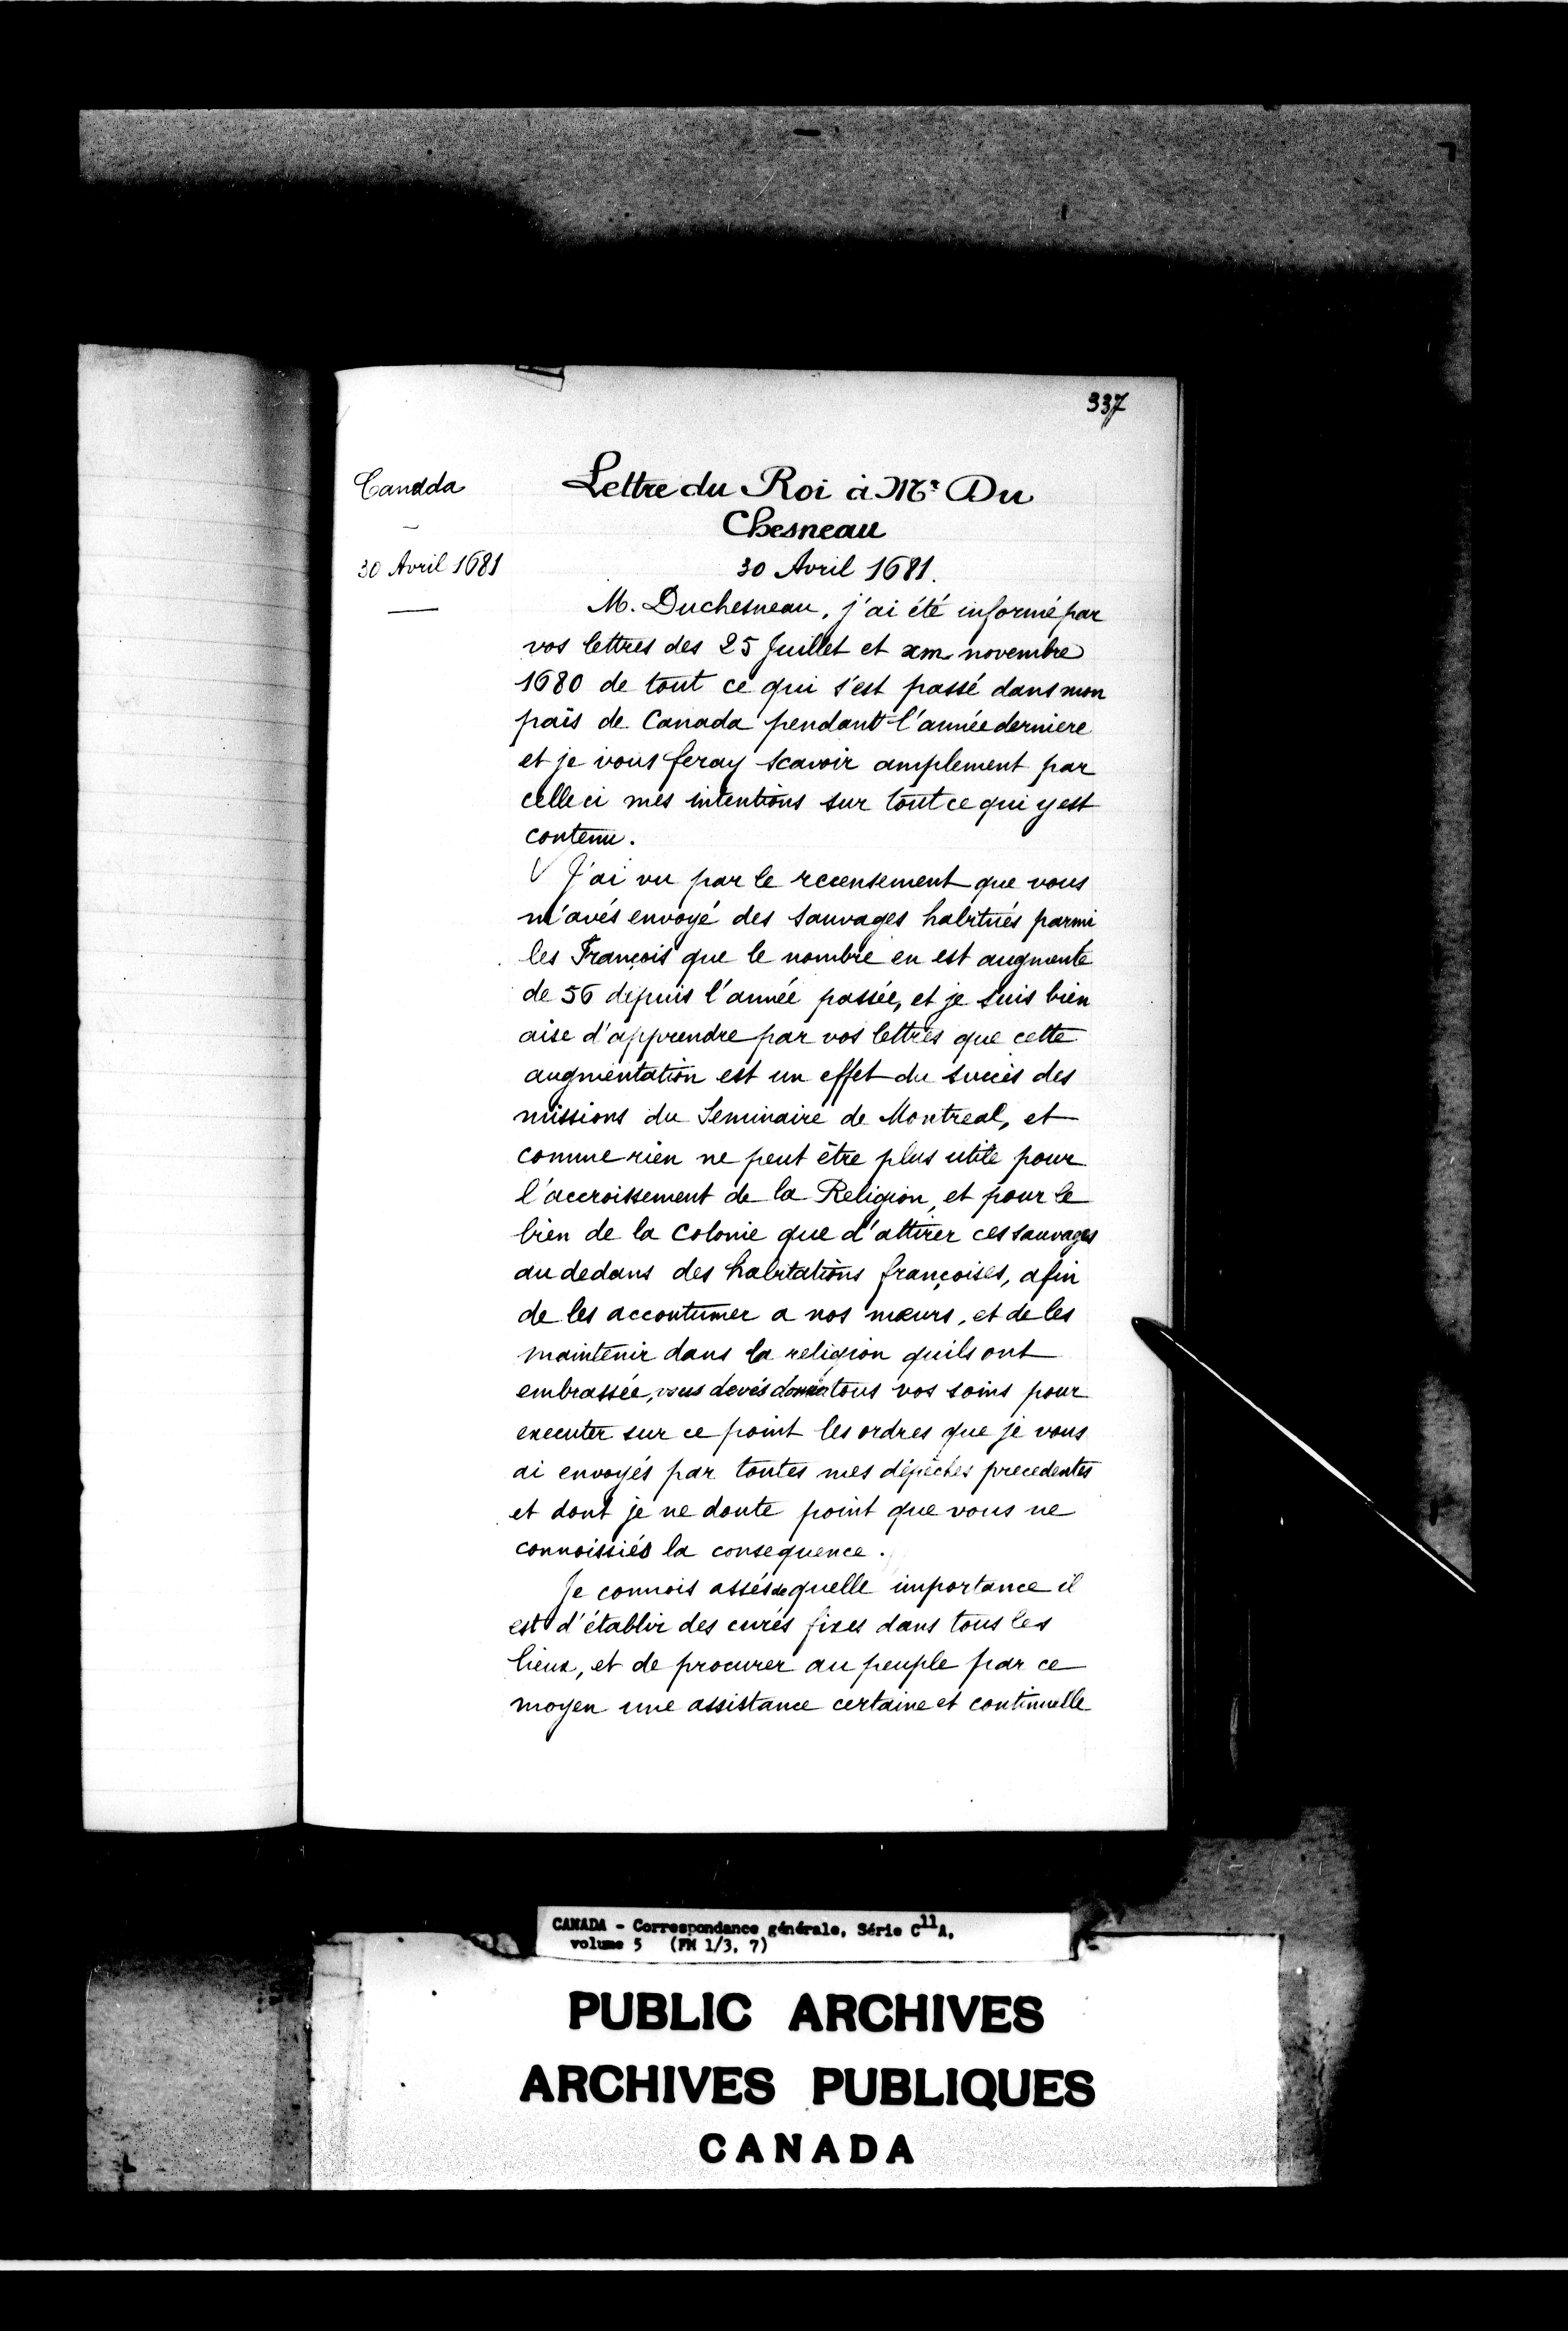 337
Canada
30 Avril 1681
Lettre du Roi à Mr. Du
Chesneau
30 Avril 1681.
M. Duchesneau, j'ai été informé par
vos lettres des 25 Juillet et novembre
1680 de tout ce qui s'est passé dans mon
païs de Canada pendant l'année derniere
et je vous feray scavoir amplement par
celle ci mes intentions sur tout ce qui y est
contenu.
J'ai vu par le recensement que vous
m'avés envoyé des sauvages habitués parmi
les François que le nombre en est augmenté
de 56 depuis l'année passée, et je suis bien
aise d'apprendre par vos lettres que cette
augmentation est un effet du succès des
missions du Seminaire de Montreal, et
comme rien ne peut être plus utile pour
l'accroissement de la Religion, et pour le
bien de la Colonie que d'attirer ces sauvages
au dedans des habitations françoises, afin
de les accoutumer a nos mœurs, et de les
maintenir dans la religion quils ont
embrassée, vous devés donner tous vos soins pour
executer sur ce point les ordres que je vous
ai envoyés par toutes mes dépêches precedentes
et dont je ne doute point que vous ne
connoissiés la consequence.
Je connois assés de quelle importance il
est d'établir des curés fixes dans tous les
lieux, et de procurer au peuple par ce
moyen une assistance certaine et continuelle
CANADA - Correspondance générale, Série C11A,
volume 5 (FM 1/3, 7)
PUBLIC ARCHIVES
ARCHIVES PUBLIQUES
CANADA